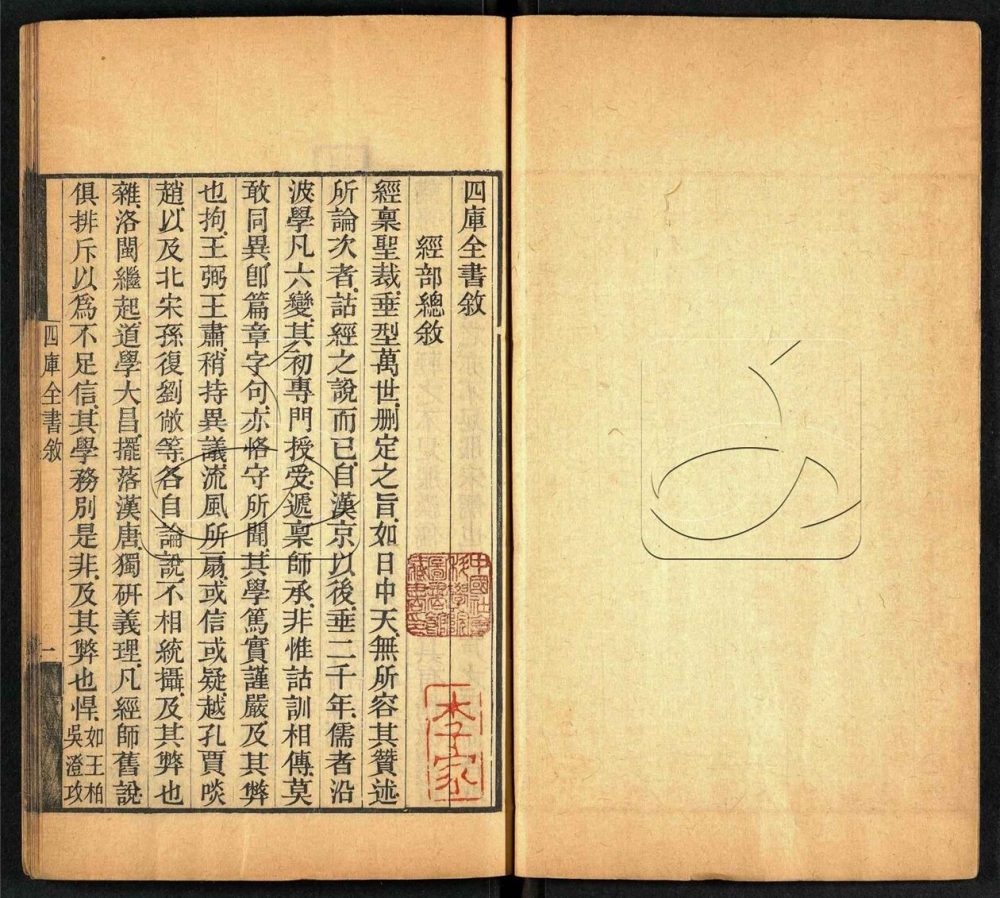 四庫全書敘
經部總敘
經稟聖裁、垂型萬世、刪定之旨、如日中天、無所容其贊述、
所論次者、詁經之說而已、自漢京以後、垂二千年、儒者沿
波、學凡六變、其初專門授受、遞稟師承、非惟詁訓相傳、莫
敢同異、卽篇章字句、亦恪守所聞、其學篤實謹嚴、及其弊
也拘、王弼王肅、稍持異議、流風所扇、或信或疑、越孔賈啖
趙、以及北宋孫復劉敞等、各自論說、不相統攝、及其弊也
雜、洛閩繼起、道學大昌、擺落漢唐、獨研義理、凡經師舊說
俱排斥以爲不足信、其學務別是非、及其弊也悍、如王柏吳澄攻
四庫全書敘
一
李家